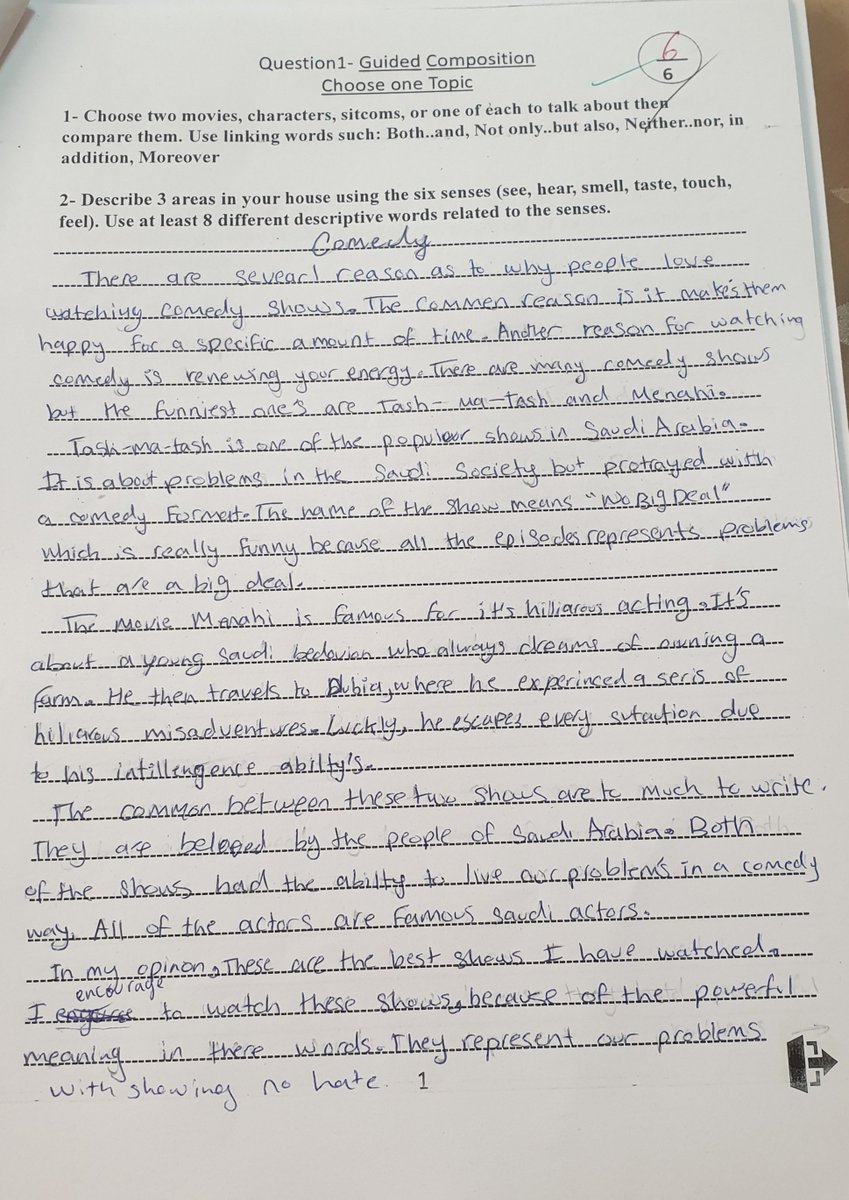 Question1- Guided Composition
Choose one Topic
6
6
1- Choose two movies, characters, sitcoms, or one of each to talk about then
compare them. Use linking words such: Both..and, Not only..but also, Neither..nor, in
addition, Moreover
2- Describe 3 areas in your house using the six senses (see, hear, smell, taste, touch,
feel). Use at least 8 different descriptive words related to the senses.
Comedy
There are sevearl reason as to why people love
watching comedy shows. The commen reason is it make's them
happy for a specific amount of time. Another reason for watching
comedy is renewing your energy. There are many comedy shows
but the funniest one's are Tash-ma-tash and Menahi.
Tash-ma-tash is one of the populeur shows in Saudi Arabia.
It is about problems in the Saudi Society but protrayed with
a comedy format. The name of the show means "No Big Deal"
which is really funny because all the episodes represents problems
that are a big deal.
The movie Menahi is famous for it's hilliarous acting. It's
about a young Saudi bedovian who always dreams of owning a
farm. He then travels to Dubia, where he experinced a seris of
hiliarous misadventures. Luckly, he escapes every sutaction due
to his intillengence abilty's.
The common between these two shows are to much to write.
They are beloved by the people of Saudi Arabia. Both
of the shows had the abilty to live our problems in a comedy
way. All of the actors are famous saudi actors.
In my opinon, These are the best shows I have watched.
I encourage to watch these shows, because of the powerful
meaning in there words. They represent our problems
with showing no hate.
1